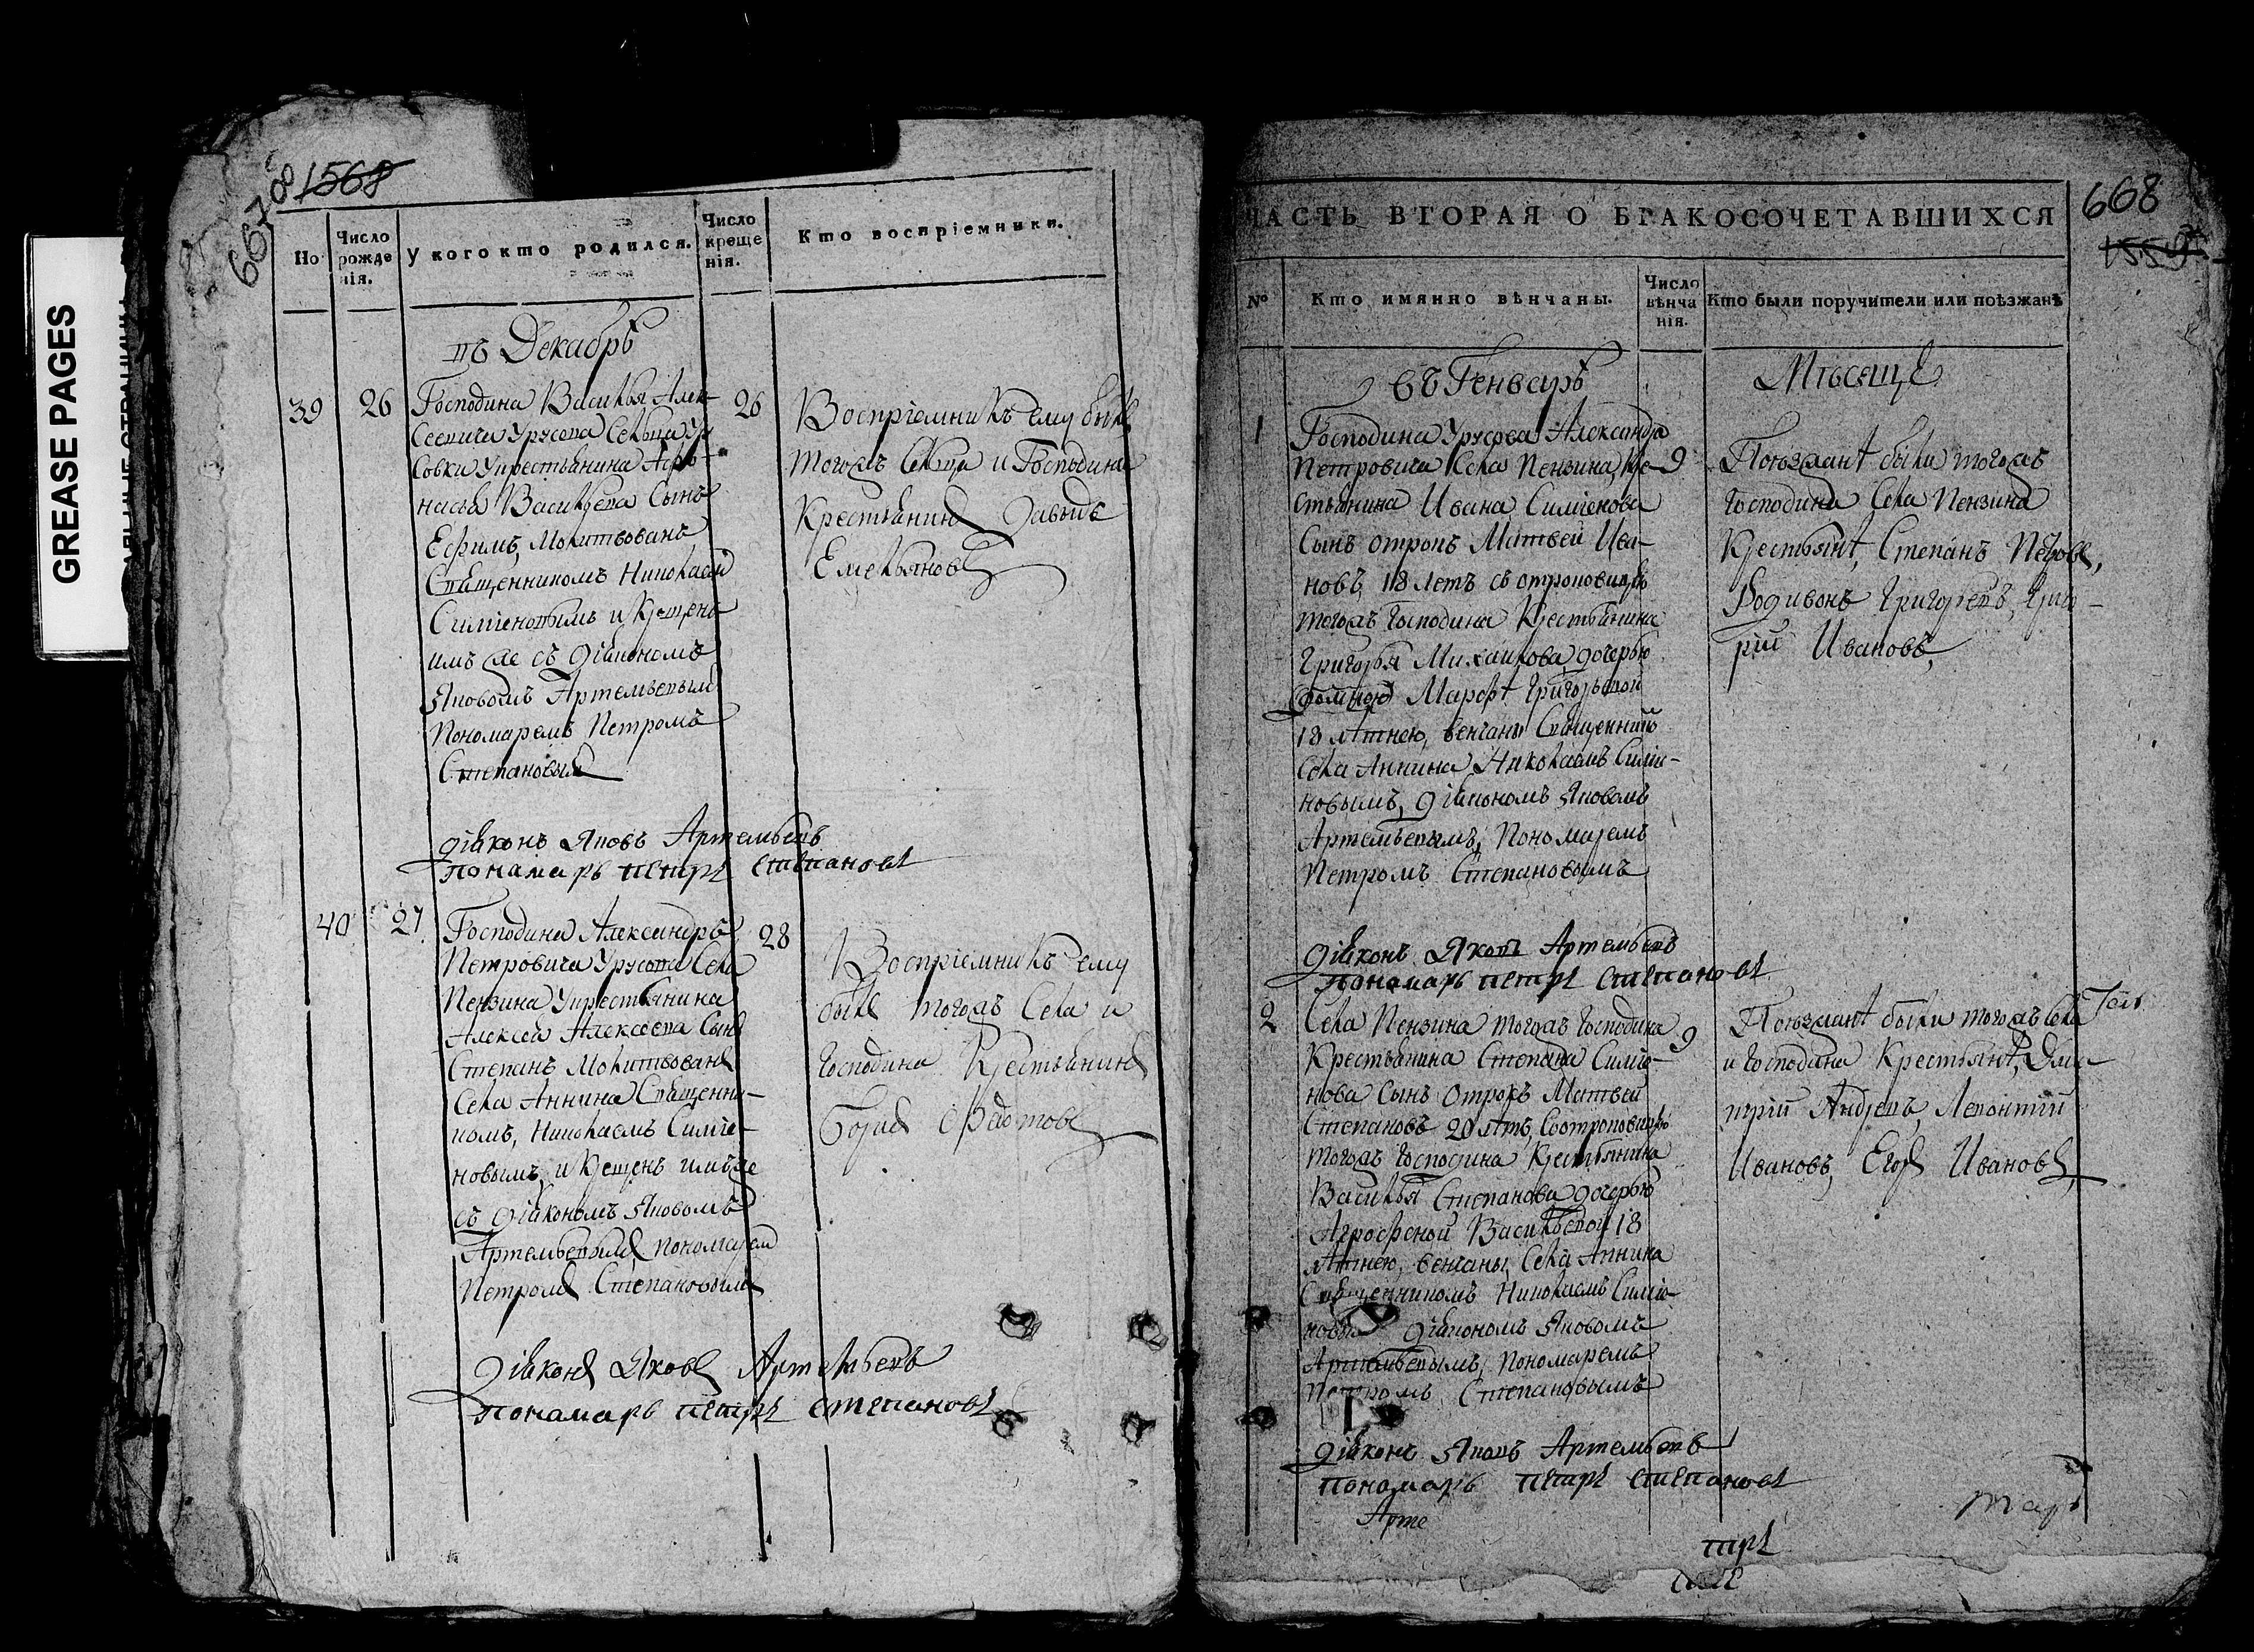 GREASE PAGES
667 об
1568
Но
Число рожденія.
У кого кто родился.
Число крещенія.
Кто воспріемники.
въ Декабрѣ
39
26
Господина Василья Алек-
сеевича Урусова Сельца Уру
совки у крестьянина Афо-
насья Васильева Сынъ
Ефимъ, Молитвованъ
Священникомъ Николаем
Симіоновымъ и Крещенъ
имъ же съ діакономъ
Яковомъ Артемьевым
Пономаремъ Петромъ
Степановым
26
Воспріемникъ ему былъ
тогожъ Сельца и Господина
Крестьянинъ Давыдъ
Емельяновъ
діаконъ Яковъ Артемьевъ
понамарь петръ степановъ
40
27
Господина Александръ
Петровича Урусова Села
Пензина у крестьянина
Алексея Алексеева Сынъ
Степанъ Молитвованъ
Села Аннина Священни-
комъ, Николаемъ Симіо-
новымъ, и Крещенъ имъ же
съ діакономъ Яковомъ
Артемьевымъ пономарем
Петромъ Степановымъ
28
Воспріемникъ ему
былъ тогожъ Села и
Господина Крестьянинъ
Борисъ Федотовъ
діаконъ Яковъ Артемьевъ
понамарь петръ степановъ
ЧАСТЬ ВТОРАЯ О БРАКОСОЧЕТАВШИХСЯ
668
1559
№
Кто имянно вѣнчаны.
Число вѣнчанія.
Кто были поручители или поѣзжанѣ
въ Генварѣ
Мѣсяцѣ
1
Господина Урусова Александра
Петровича Села Пензина, Кре-
стьянина Ивана Симіонова
Сынъ отрокъ Матвей Ива-
новъ, 18 летъ съ отроковицею
тогожъ Господина Крестьянина
Григорья Михаилова дочерью
Марфѣ Григорьевой
18 лѣтнею, венчаны Священник
Села Аннина Николаемъ Симіо-
новымъ, діакономъ Яковомъ
Артемьевымъ, Пономаремъ
Петромъ Степановымъ
9
Поѣзжанѣ были тогожъ
Господина Села Пензина
Крестьянѣ, Степанъ Петровъ,
Родивонъ Григорьевъ, Григо-
рій Ивановъ,
діаконъ Яковъ Артемьевъ
понамарь петръ степановъ
2
Села Пензина тогожъ Господина
Крестьянина Степана Симіо-
нова Сынъ Отрокъ Матвей
Степановъ 20 лѣтъ, Соотроковицею
тогожъ Господина Крестьянина
Василья Степанова дочерью
Агрофеной Васильевой 18
лѣтнею, венчаны, Села Аннина
Священникомъ Николаемъ Симіо-
новым діакономъ Яковомъ
Артемьевымъ, Пономаремъ
Петромъ Степановымъ
9
Поѣзжанѣ были тогожъ Села
и Господина Крестьянѣ, Дми-
трій Андреевъ, Леонтій
Ивановъ, Егоръ Ивановъ
діаконъ Яковъ Артемьевъ
понамарь петръ степановъ
Арте
тръ